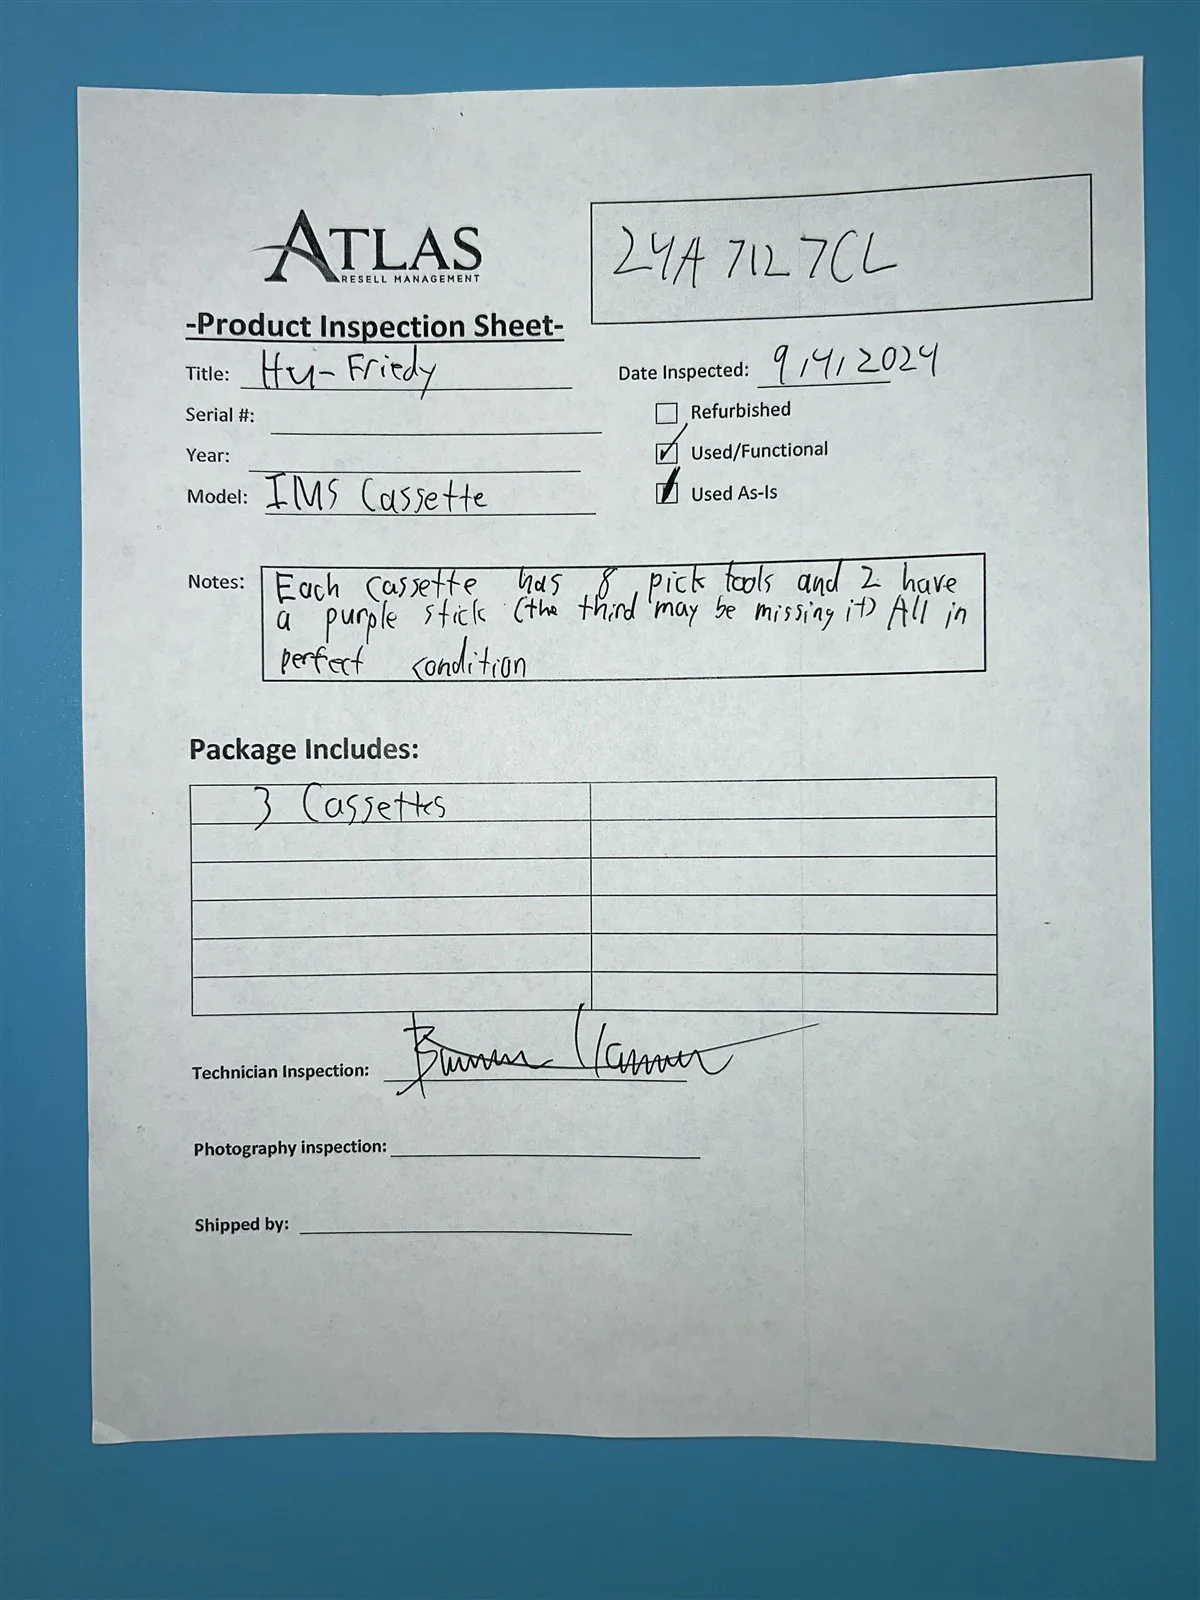 ATLAS
RESELL MANAGEMENT
24A7127CL
-Product Inspection Sheet-
Title: Hu-Friedy
Date Inspected: 9/4/2024
Serial #:
Refurbished
Year:
Used/Functional
Model: IMS Cassette
Used As-Is
Notes: Each cassette has 8 pick tools and 2 have
a purple stick (the third may be missing it) All in
perfect condition
Package Includes:
3 Cassettes
Technician Inspection:
Photography inspection:
Shipped by: